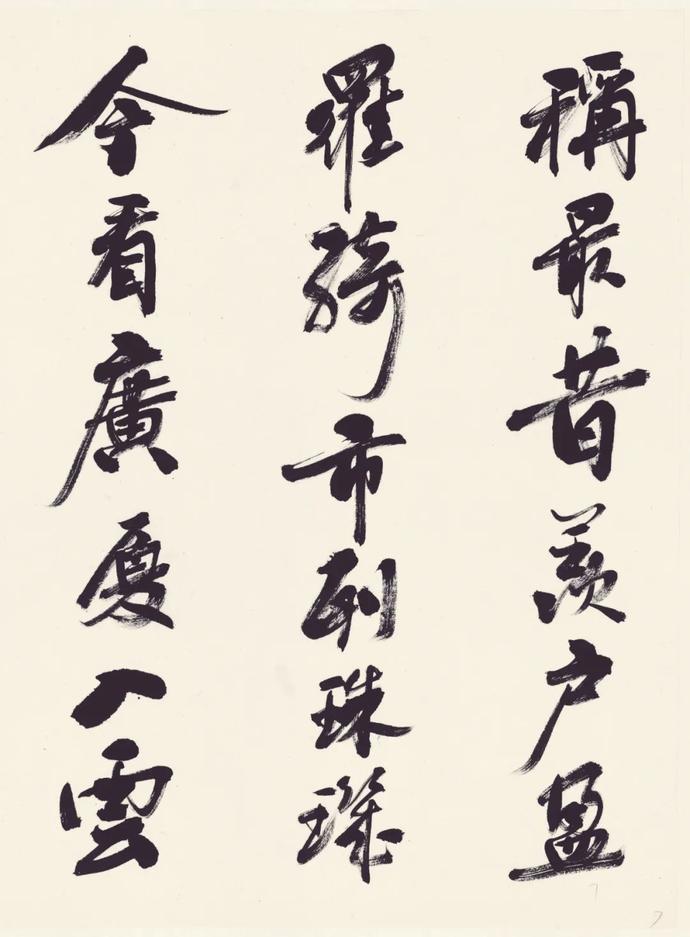 稱最昔羨户盈
羅綺市列珠璣
今看廣廈入雲